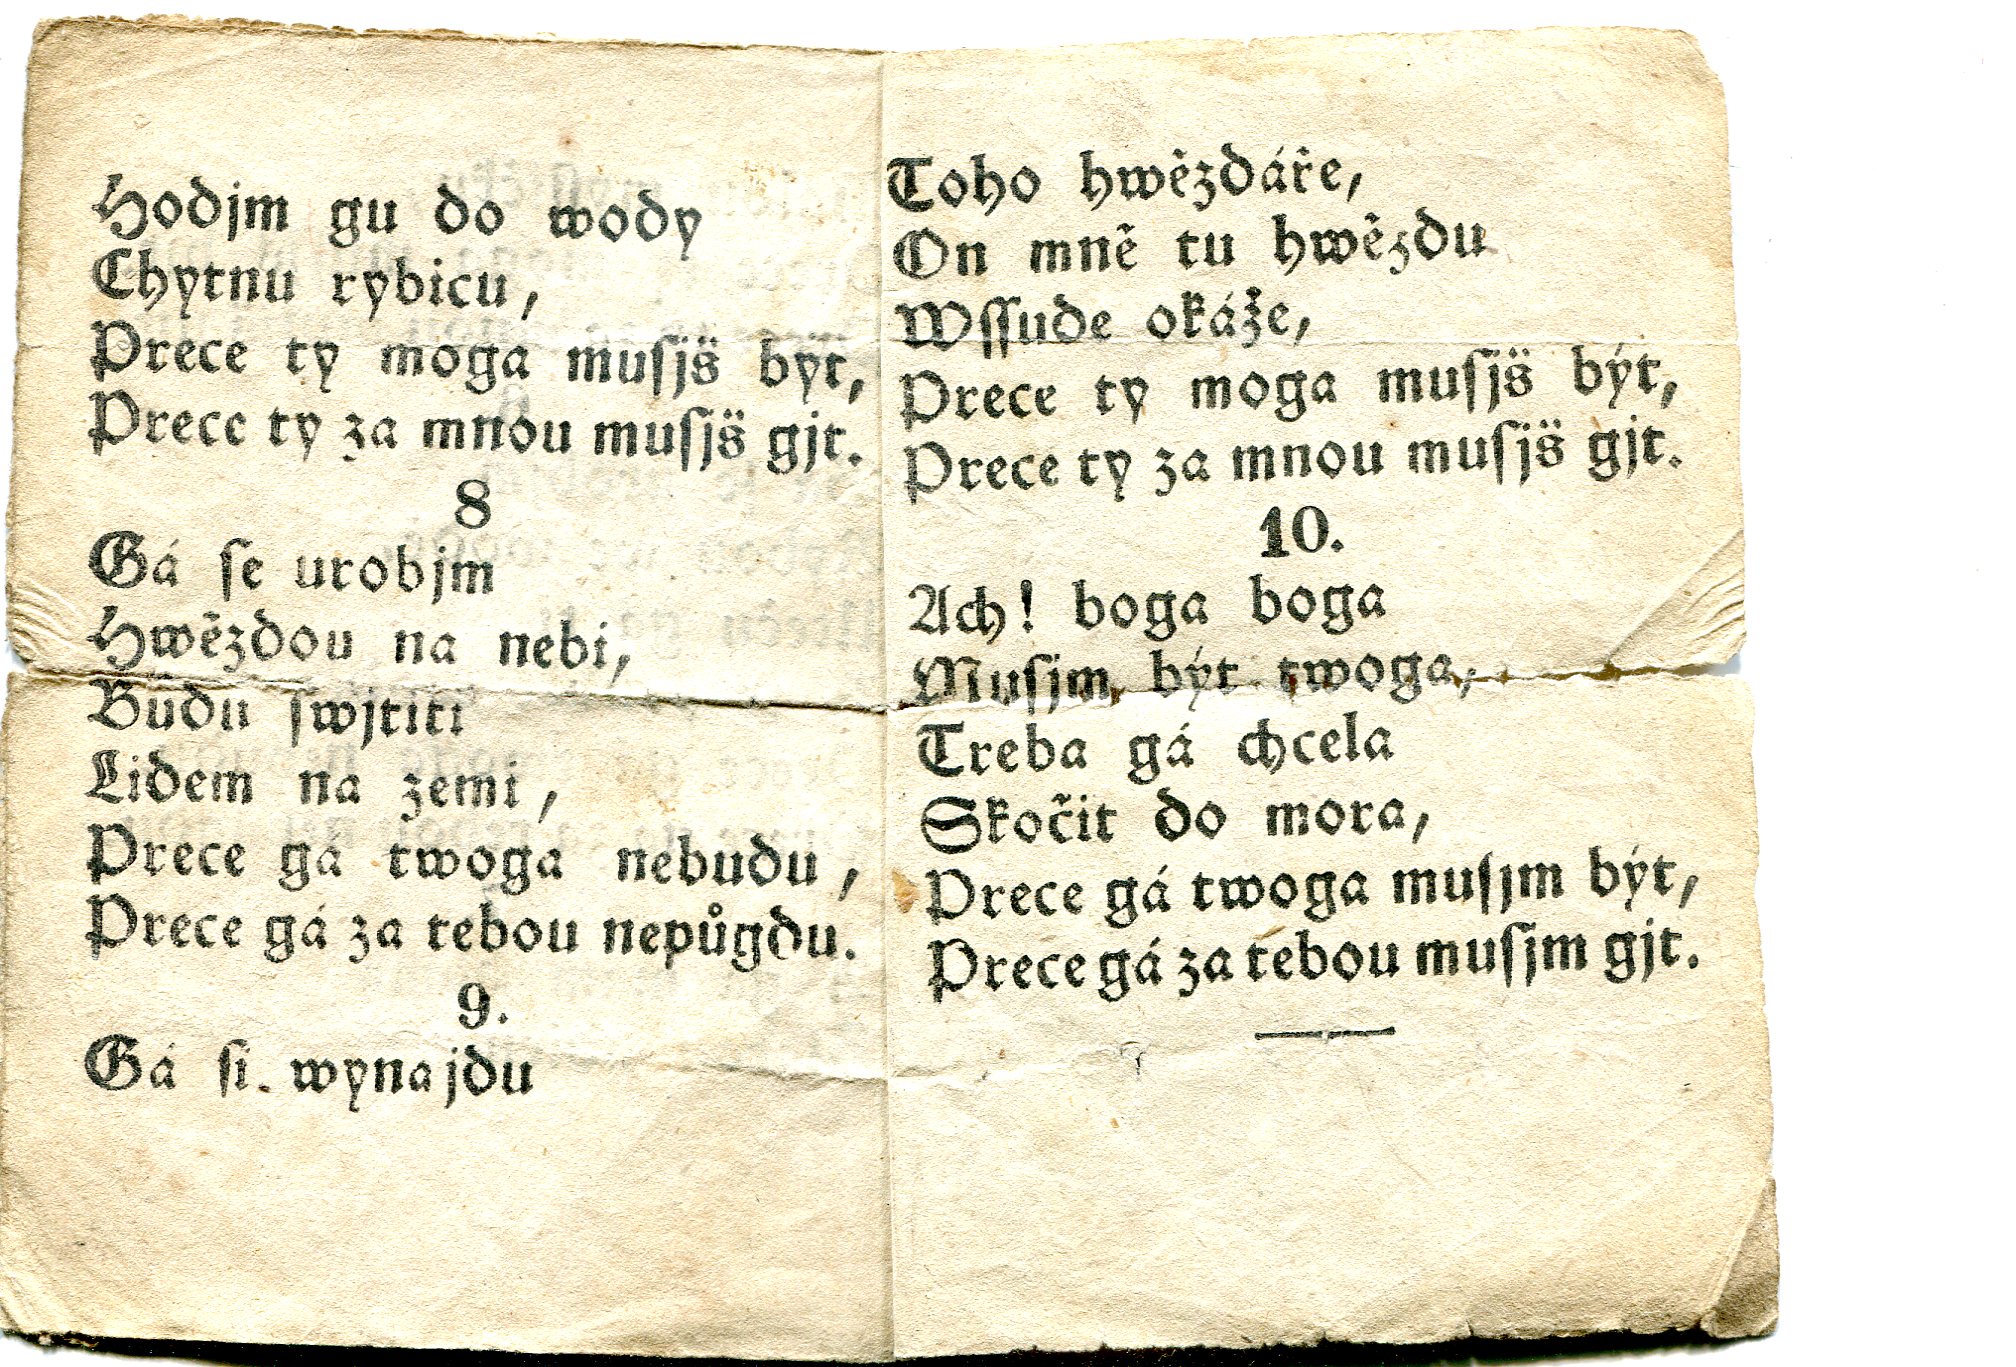 Hodjm gu do wody
Chytnu rybicu,
Prece ty moga musjš byt,
Prece ty za mnou musjš gjt.
8
Gá se urobjm
Hwězdou na nebi,
Budu swjtiti
Lidem na zemi,
Prece gá twoga nebudu,
Prece gá za tebou nepůgdu.
9.
Gá si. wynajdu
Toho hwězdáře,
On mně tu hwězdu
Wssude okáže,
Prece ty moga musjš být,
Prece ty za mnou musjš gjt.
10.
Ach! boga boga
Musjm být twoga,
Treba gá chcela
Skočit do mora,
Prece gá twoga musjm být,
Prece gá za tebou musjm gjt.